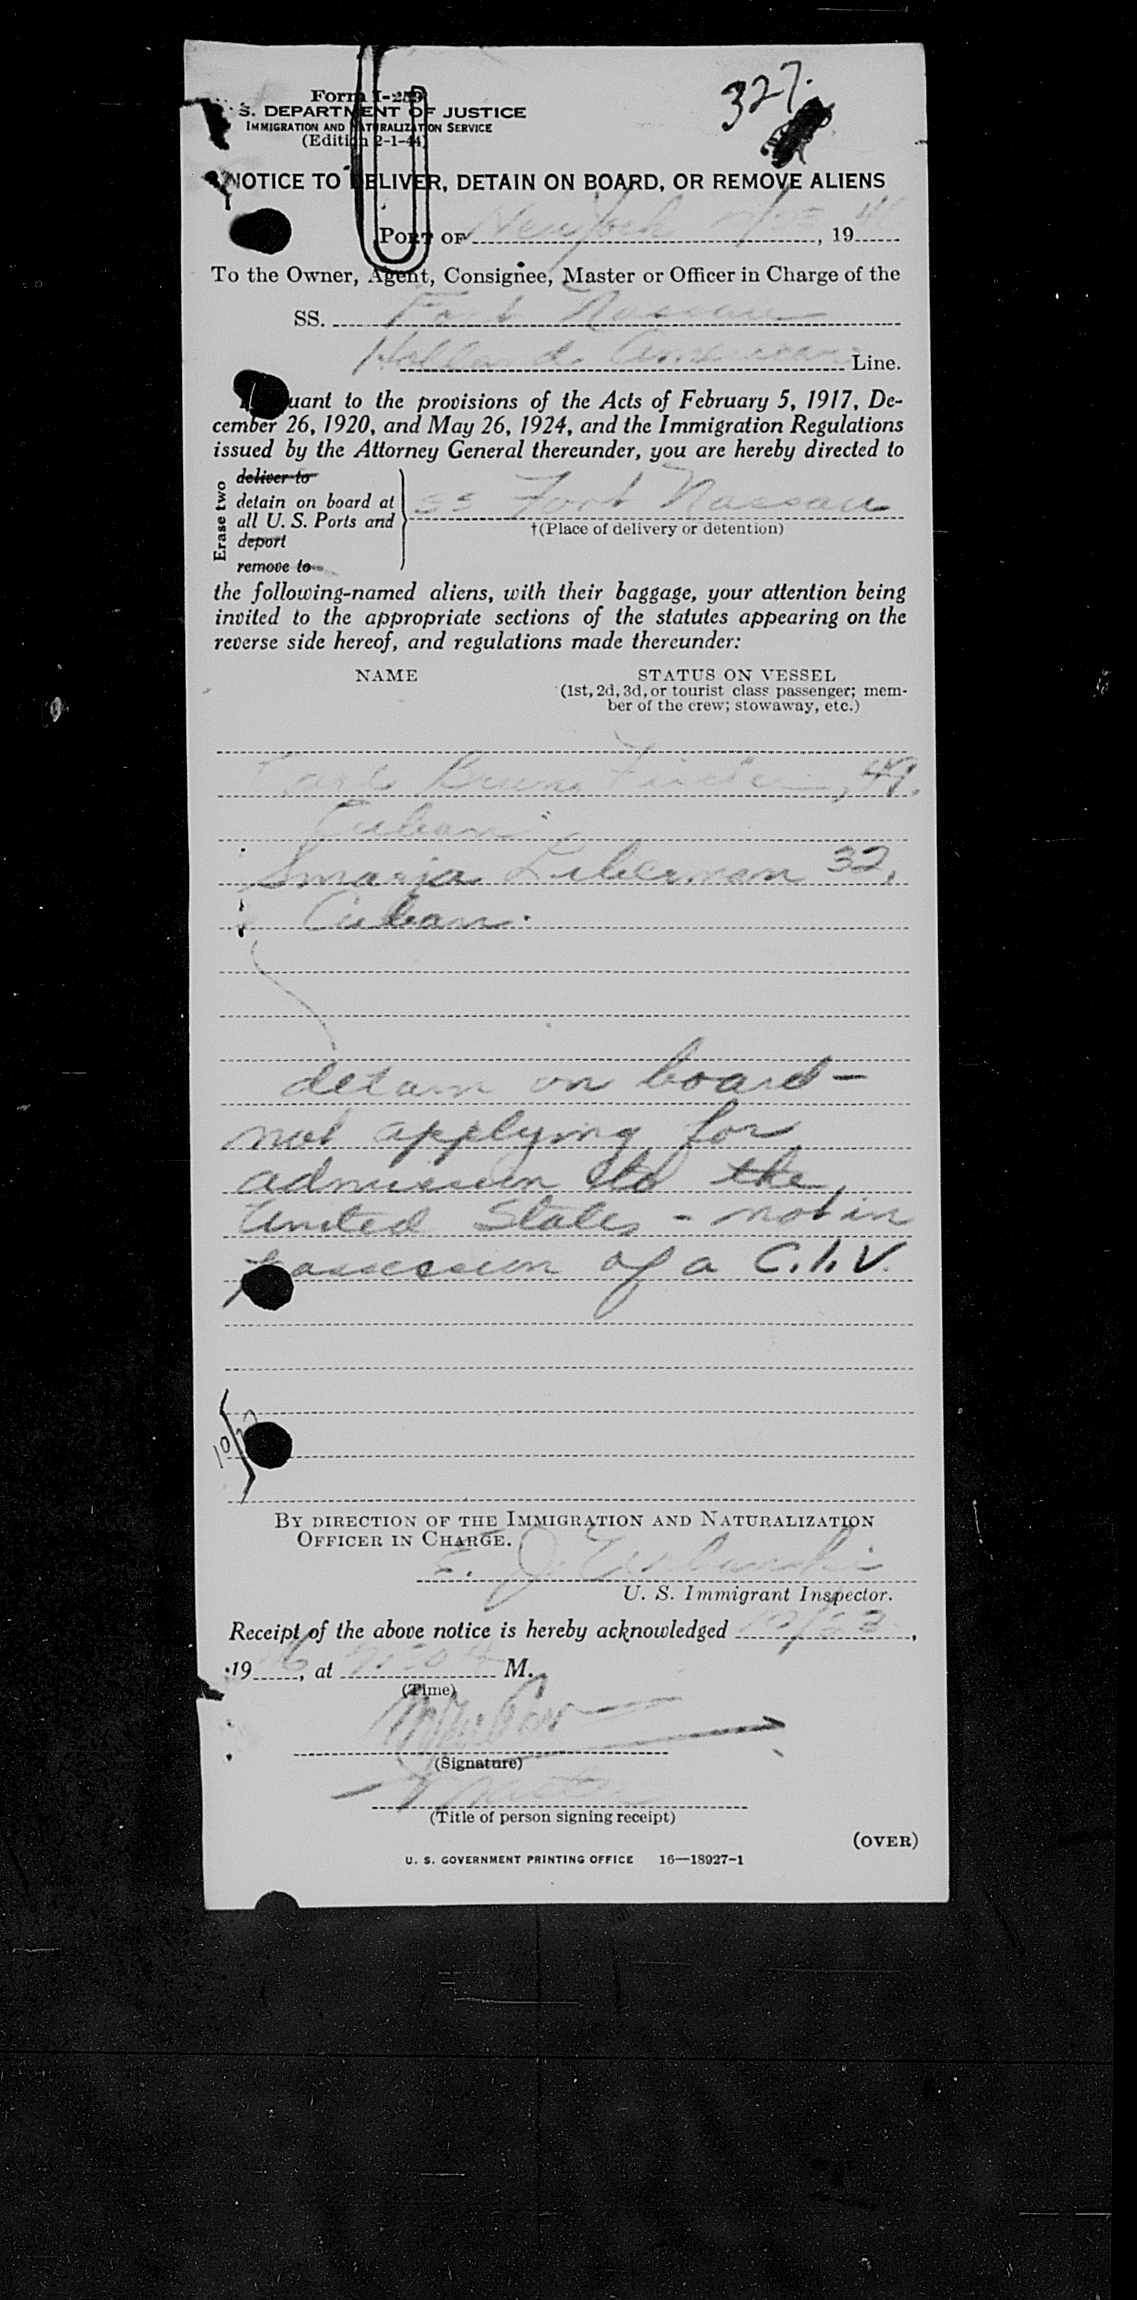 327.
Form I-259
S. DEPARTMENT OF JUSTICE
IMMIGRATION AND NATURALIZATION SERVICE
(Edition 2-1-44)
NOTICE TO DELIVER, DETAIN ON BOARD, OR REMOVE ALIENS
PORT OF New York, 19
To the Owner, Agent, Consignee, Master or Officer in Charge of the
SS. Fort Nassau
Holland American Line.
uant to the provisions of the Acts of February 5, 1917, De-
cember 26, 1920, and May 26, 1924, and the Immigration Regulations
issued by the Attorney General thereunder, you are hereby directed to
Erase two
deliver to
detain on board at
all U. S. Ports and
deport
remove to
SS Fort Nassau
†(Place of delivery or detention)
the following-named aliens, with their baggage, your attention being
invited to the appropriate sections of the statutes appearing on the
reverse side hereof, and regulations made thereunder:
NAME STATUS ON VESSEL
(1st, 2d, 3d, or tourist class passenger; mem-
ber of the crew; stowaway, etc.)
Bruno, 49,
Cuban
Smarja Liberman 32,
Cuban.
detain on board -
not applying for
admission to the
United States - not in
possession of a C.I.V.
BY DIRECTION OF THE IMMIGRATION AND NATURALIZATION
OFFICER IN CHARGE.
E. J.
U. S. Immigrant Inspector.
Receipt of the above notice is hereby acknowledged 10/23,
19 46, at M.
(Time)
(Signature)
Master
(Title of person signing receipt)
(OVER)
U. S. GOVERNMENT PRINTING OFFICE 16—18927-1